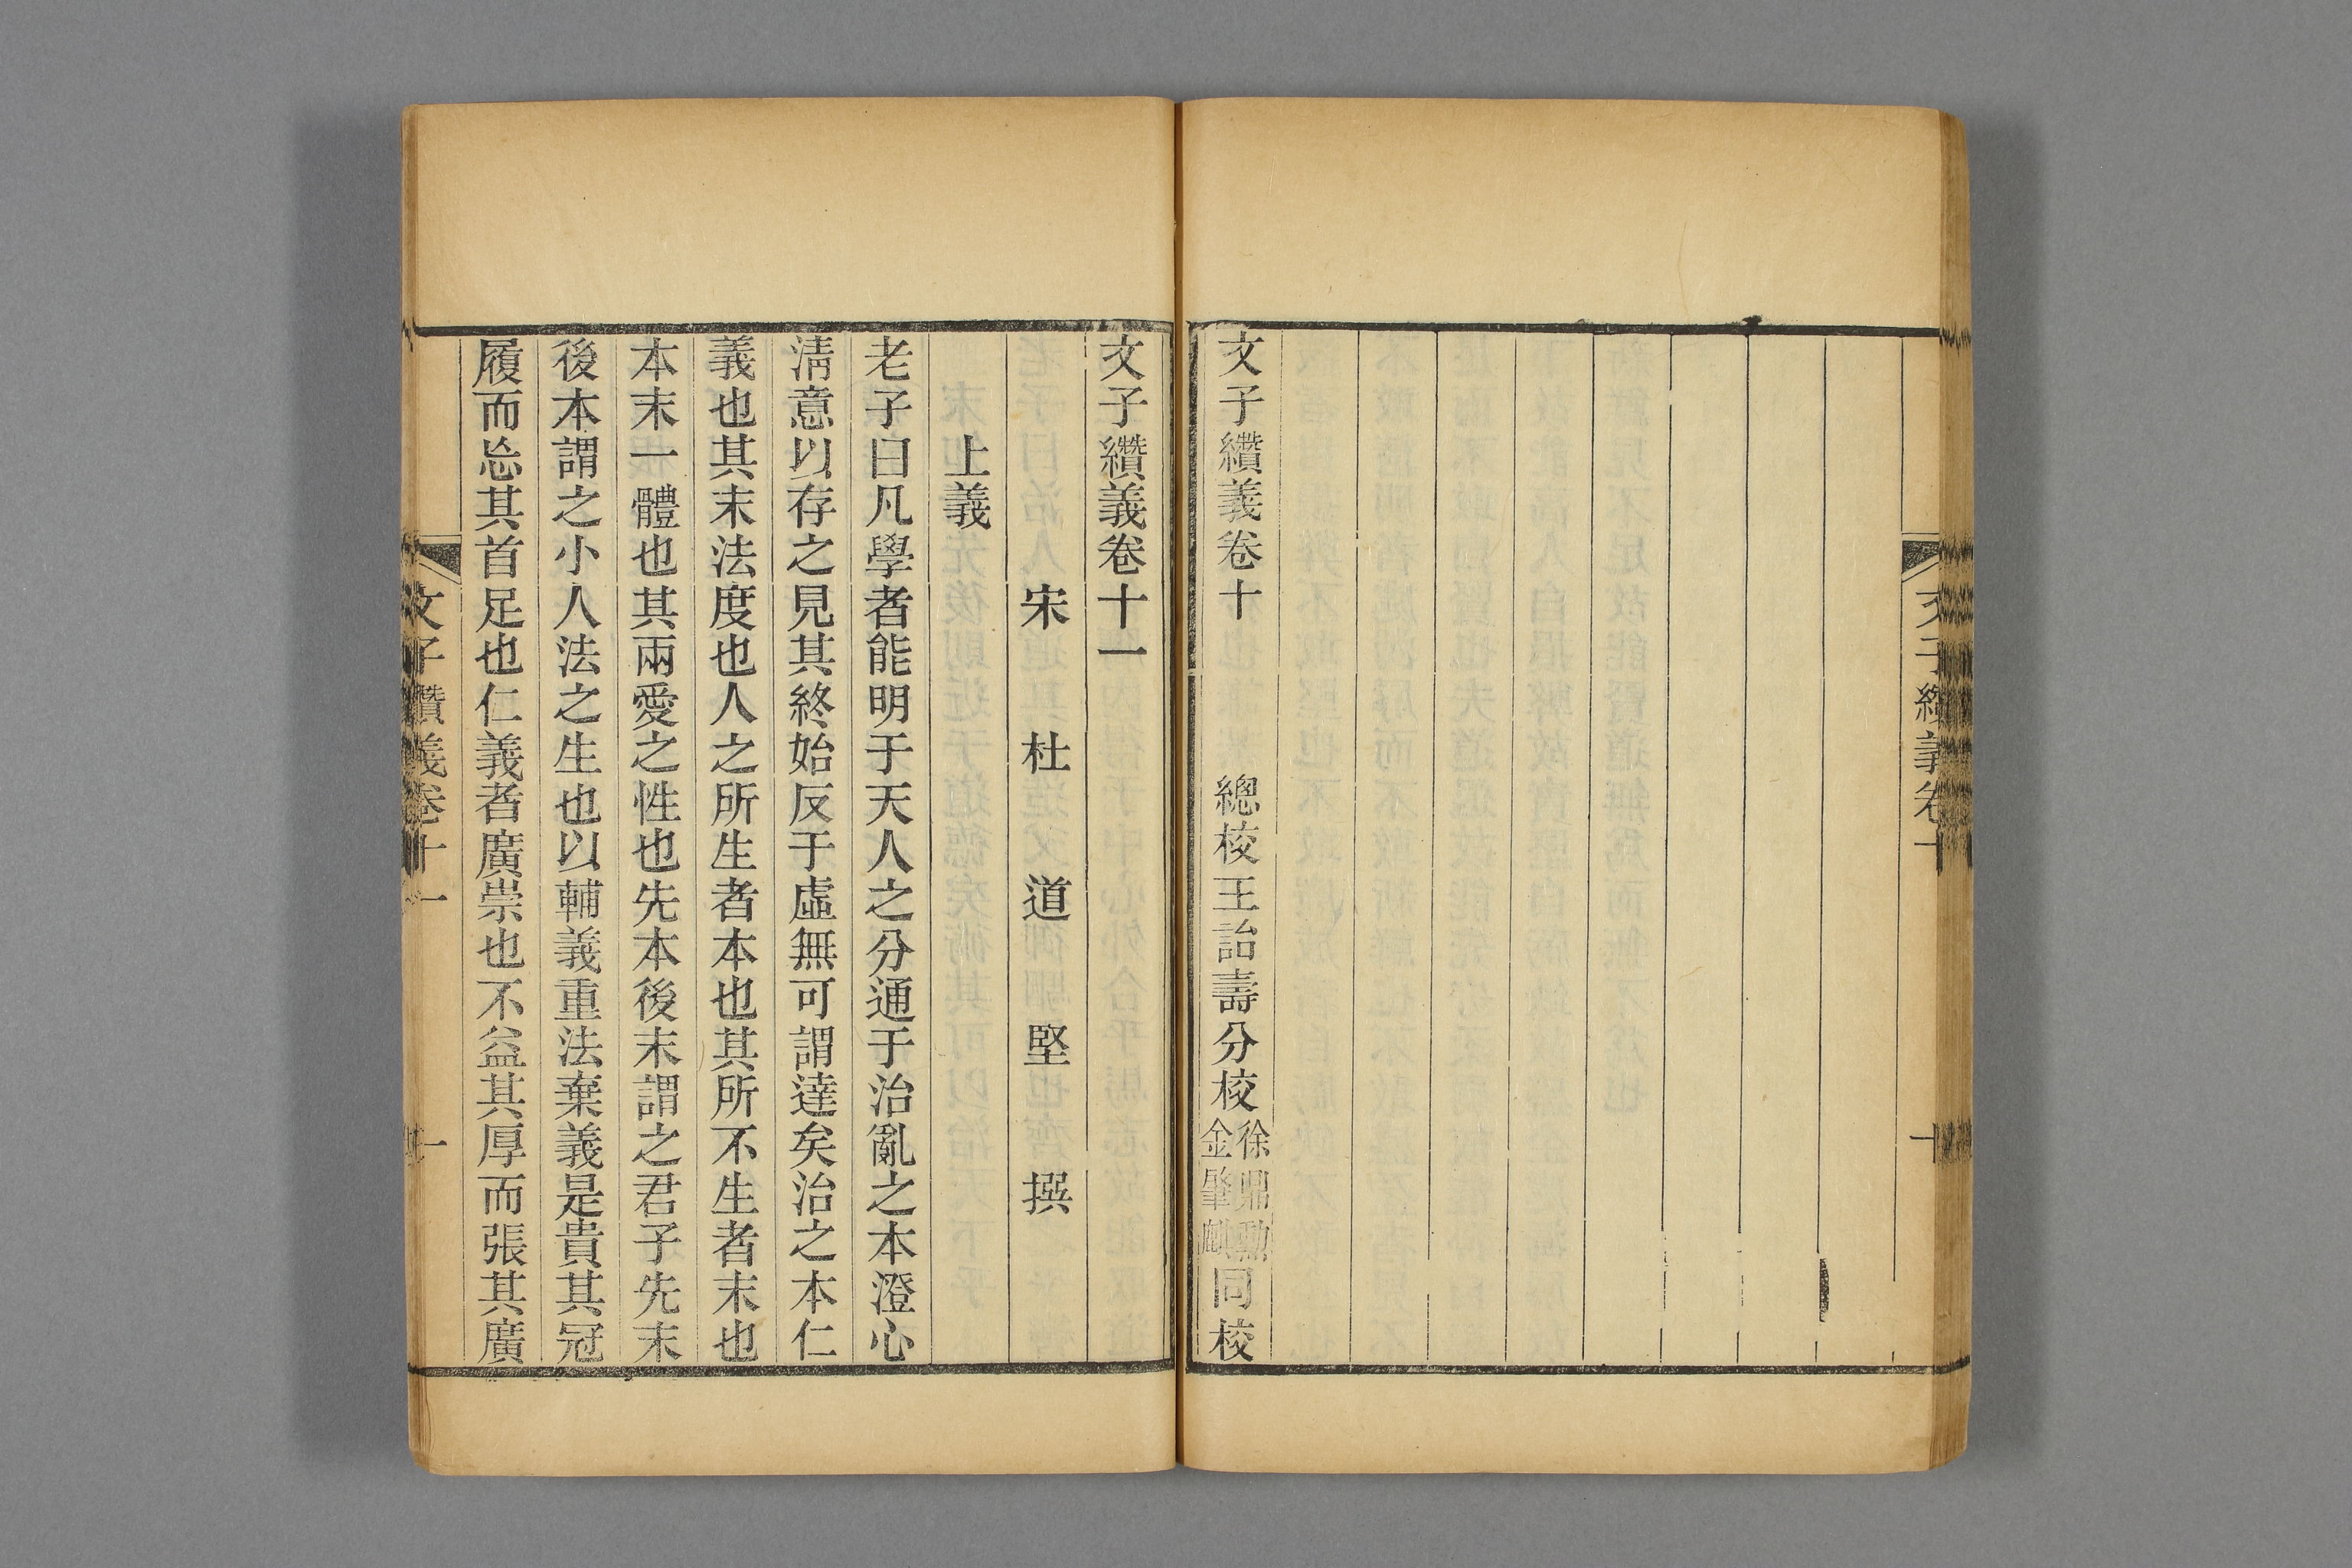 文子纘義卷十
十
文子纘義卷十　總校王詒壽分校徐鼎勳金肇麒同校
文子纘義卷十一
宋　杜　道　堅　撰
上義
老子曰凡學者能明于天人之分通于治亂之本澄心
淸意以存之見其終始反于虛無可謂達矣治之本仁
義也其末法度也人之所生者本也其所不生者末也
本末一體也其兩愛之性也先本後末謂之君子先末
後本謂之小人法之生也以輔義重法棄義是貴其冠
履而忘其首足也仁義者廣崇也不益其厚而張其廣
文子纘義卷十一
一